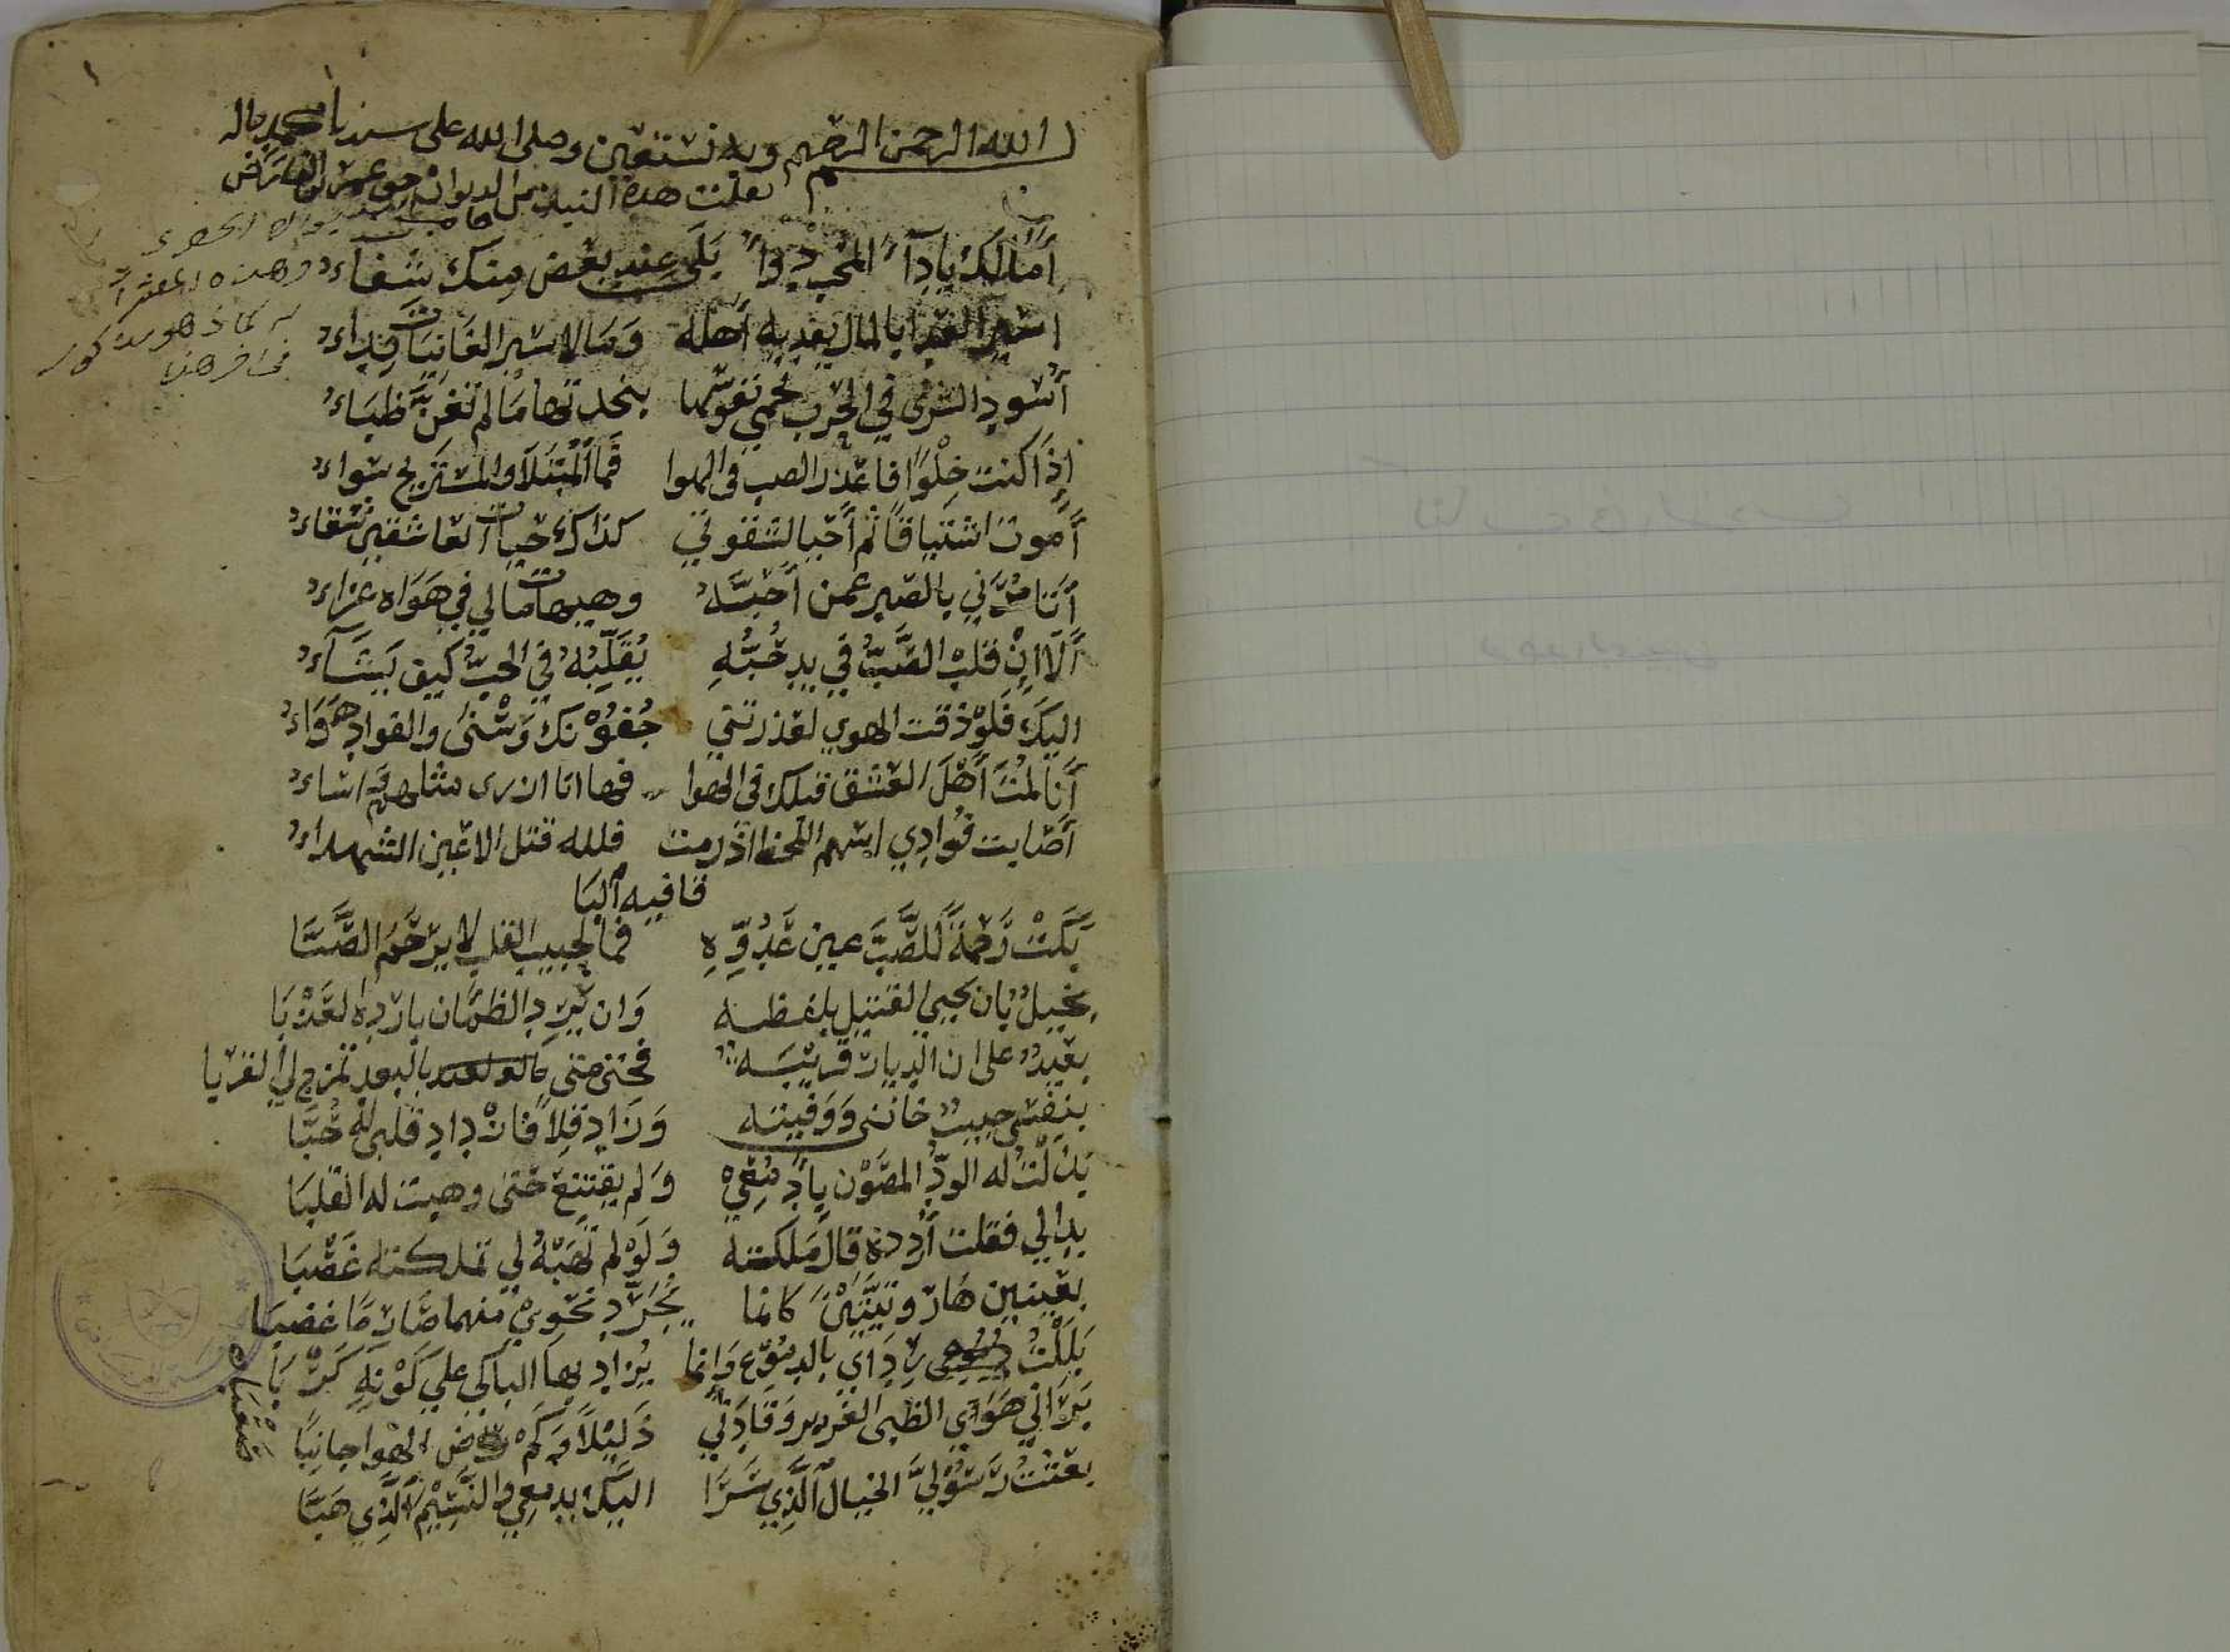 الله الرحمن الرحيم وبه نستعين وصلى الله على سيدنا محمد واله
نقلت هذه النبذه من الديوان
وهذه المعشرات
أمالك يا داءَ المحب دواءُ بَلَى عند بعض منك شفاءُ
اسير العدا بالمال يفديه أهله وَمَا لاسير الغَانيات فِداءُ
أسود الشرى في الحرب تحمي نفوسها
إذَا كنت خِلْوًا فاعذر الصب في الهوا فَمَا المُبتلا والمستريح سواءُ
أموت اشتياقًا ثم أحيا لشقوتي كذاك حيات العاشقين شقاءُ
وهيهات مالي في هَوَاه عزاءُ بالصبر عمن أحبّهُ
ألا انّ قلب الصَّبِّ في يد حُبِّهِ يُقَلِّبُهُ في الحبِّ كيف يَشَآءُ
اليكَ فَلَوْ ذقت الهوي لعذرتني جُفُوْنكَ وَسْنى والفواد هَوَاءُ
أنا لمْتُ أَهْلَ العشق قبلك في الهوا فها انا
أصابت فُؤادِي اسهم اللحظ اذ رمت فلله قتل الاعين الشهداءُ
قافيه البَا
بَكَتْ رَحْمَةً لِلصَّبِّ عين عَدُوِّهِ فما لحبيب القلب لا يرْحَمُ الصَّبَّا
بخيلٌ بان يحيي القتيل بلفظه وَان يَرِد الظمَّان بارده العَذْبَا
بعيدٌ على ان الديار قريبَه فحتى متى بالبعد تمزج لي القربا
بنفسي حبيبٌ خانني وَوَفيته وَزَاد قِلاً فَازْداد قلبي له حُبَّا
بذلتُ له الودّ المصَوْن بادمُعِيْ وَلم يقتنع حتى وهبت له القلبَا
بدا لي فقلت أردده قال مَلكته وَلَوْ لم تَهَبْهُ لي تملكته غَصْبَا
بعينين كانما يُجَرّد نحوي منهما صَارمًا عضبَا
بَلَلْتُ رِدَاي بالدمُوْع وَإنما يُزاد بها الباكي علي كَرْبه كَرْبَا
بَرَاني هَوَاي الظبى الغرير وَقَادَني ذَلِيْلاً وَكَمْ الهوا جانبًا
صَعْبَا
بعَثْتُ رَسُوْليَّ الخيال الَّذِي سَرَا اليكَ بدمعي والنَّسِيْم الَّذِي هَبَّا